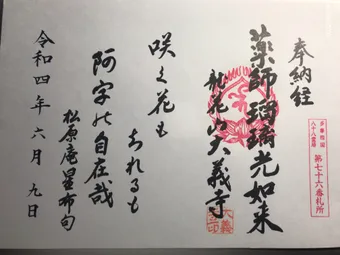 奉納経
多摩四国
八十八霊場
第七十六番札所
薬師瑠璃光如来
龍花山大義寺
咲く花も
ちれるも
阿字の自在哉
松原庵星布句
令和四年六月九日